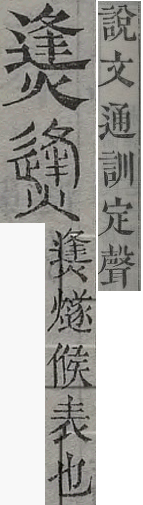 說文通訓定聲
㷭
㷭
㷭燧候表也